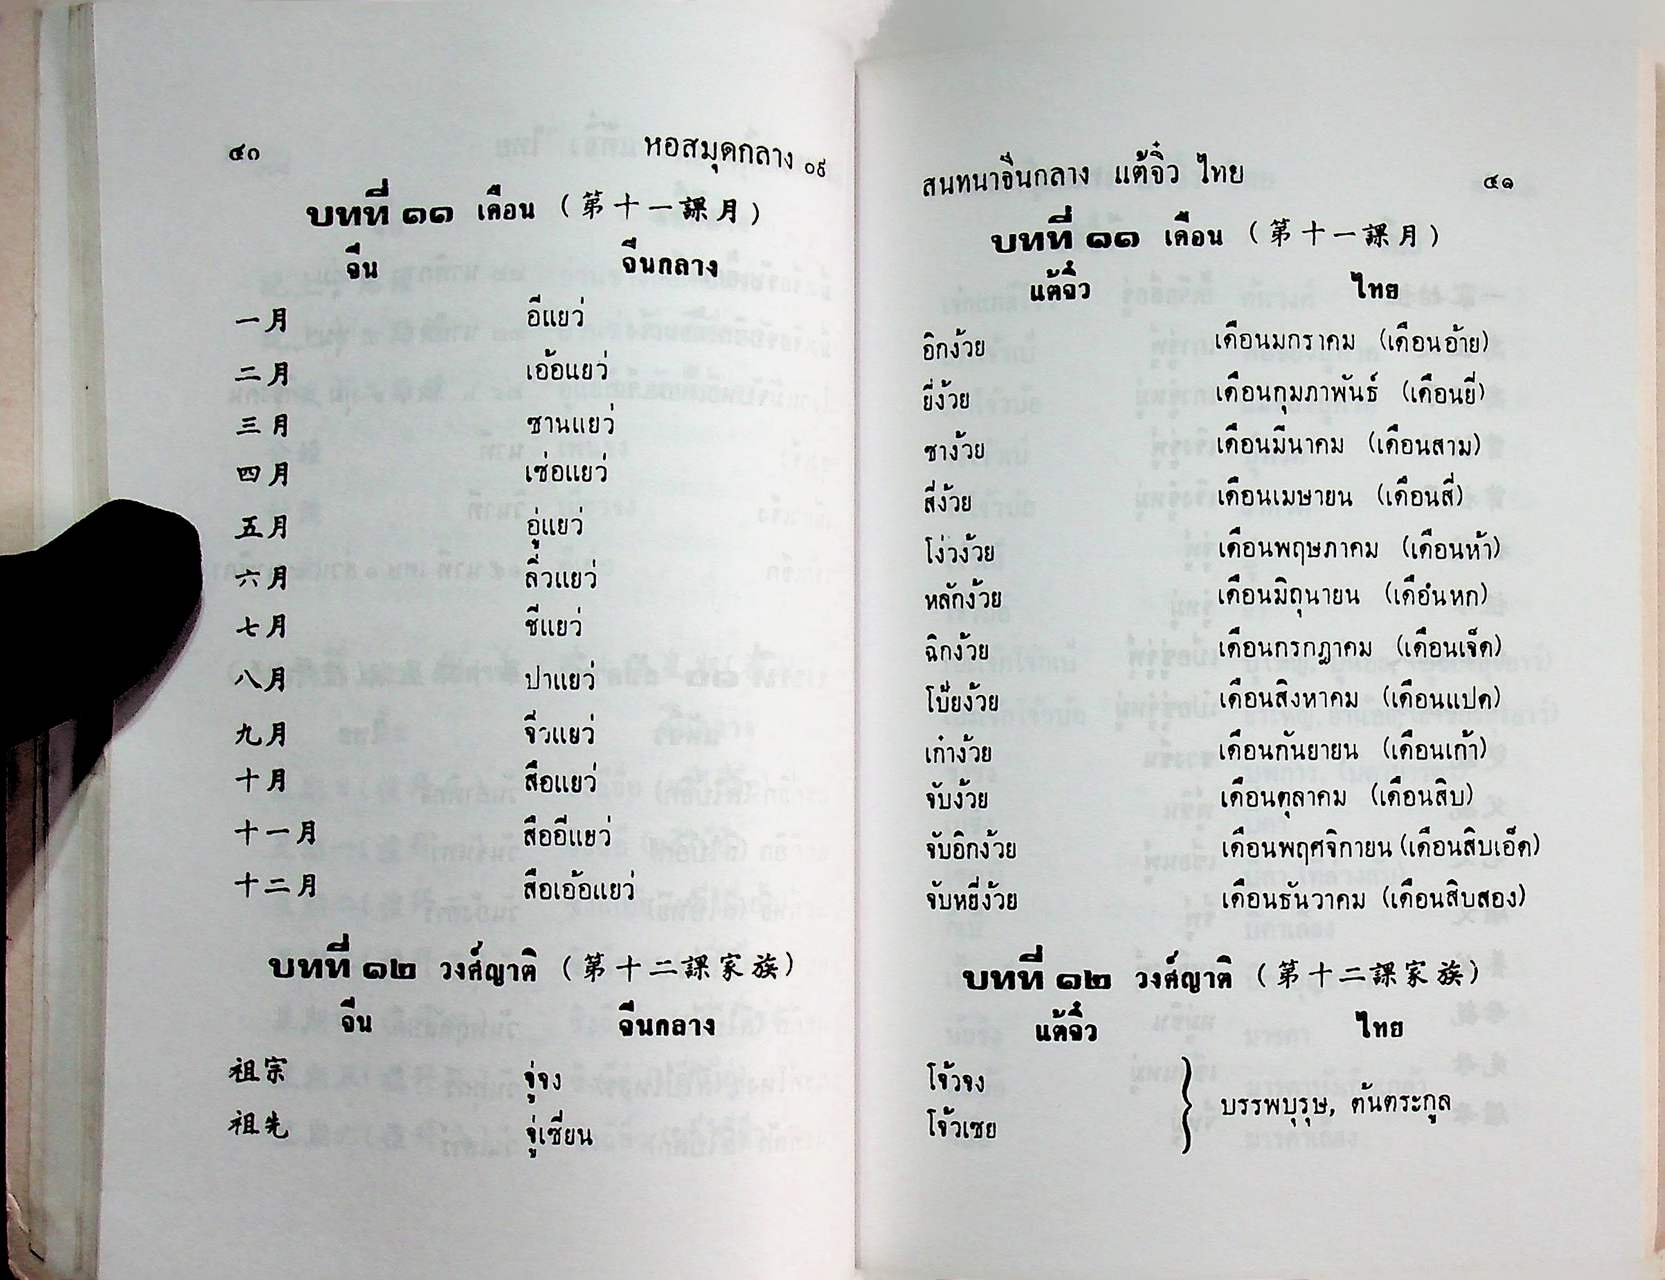 ๔๐ หอสมุดกลาง ๐๙
บทที่ ๑๑ เดือน (第十一課月)
จีน จีนกลาง
一月 อีแยว่
二月 เอ้อแยว่
三月 ซานแยว่
四月 เซ่อแยว่
五月 อู่แยว่
六月 ลิ่วแยว่
七月 ชีแยว่
八月 ปาแยว่
九月 จี่วแยว่
十月 สือแยว่
十一月 สืออีแยว่
十二月 สือเอ้อแยว่
บทที่ ๑๒ วงศ์ญาติ (第十二課家族)
จีน จีนกลาง
祖宗 จู่จง
祖先 จู่เซี่ยน
สนทนาจีนกลาง แต้จิ๋ว ไทย ๔๑
บทที่ ๑๑ เดือน (第十一課月)
แต้จิ๋ว ไทย
อิกง้วย เดือนมกราคม (เดือนอ้าย)
ยี่ง้วย เดือนกุมภาพันธ์ (เดือนยี่)
ซาง้วย เดือนมีนาคม (เดือนสาม)
สี่ง้วย เดือนเมษายน (เดือนสี่)
โง่วง้วย เดือนพฤษภาคม (เดือนห้า)
หลักง้วย เดือนมิถุนายน (เดือนหก)
ฉิกง้วย เดือนกรกฎาคม (เดือนเจ็ด)
โป๊ยง้วย เดือนสิงหาคม (เดือนแปด)
เก๋าง้วย เดือนกันยายน (เดือนเก้า)
จับง้วย เดือนตุลาคม (เดือนสิบ)
จับอิกง้วย เดือนพฤศจิกายน (เดือนสิบเอ็ด)
จับหยี่ง้วย เดือนธันวาคม (เดือนสิบสอง)
บทที่ ๑๒ วงศ์ญาติ (第十二課家族)
แต้จิ๋ว ไทย
โจ้วจง
โจ้วเซย
บรรพบุรุษ, ต้นตระกูล